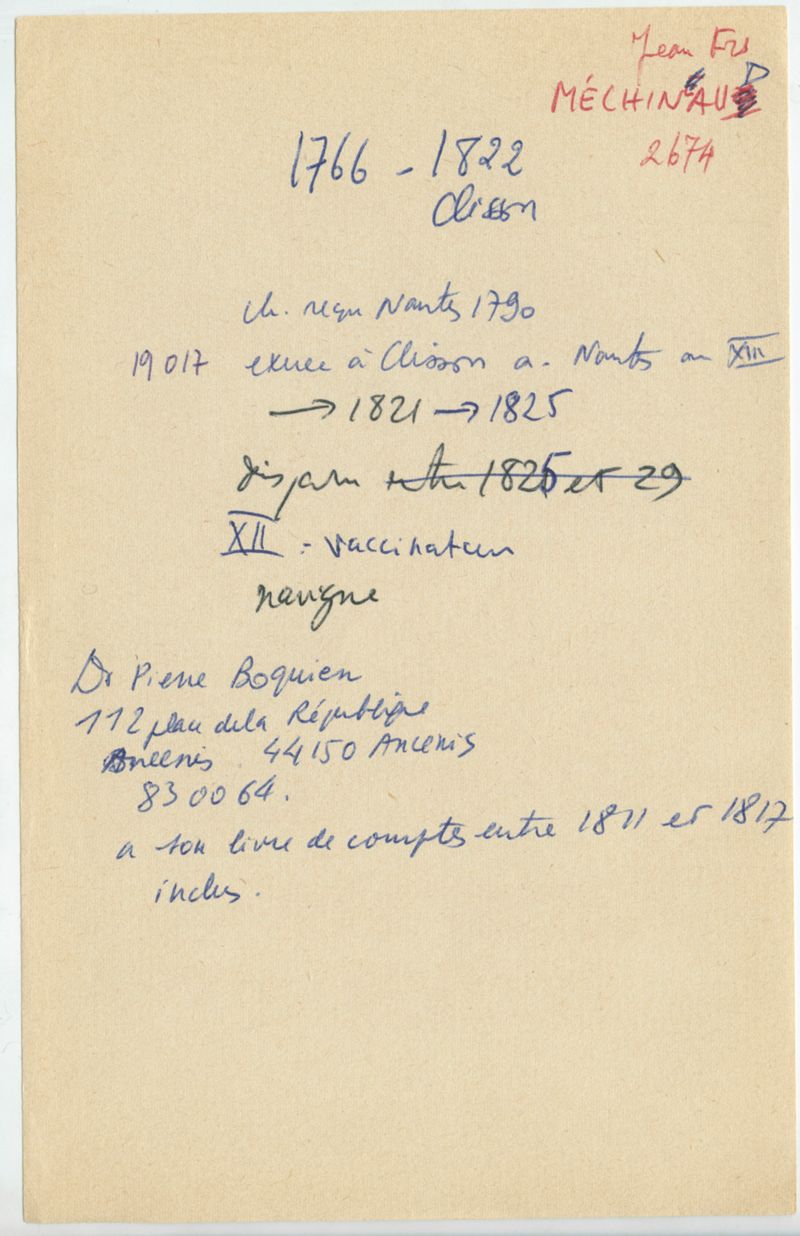 Jean Frs
MÉCHINEAUD
2674
1766 - 1822
Clisson
ch. reçu Nantes 1790
19017 exerce à Clisson a. Nantes an XIII
→ 1821 → 1825
disparu entre 1825 et 29
XII - vaccinateur
navigue
Dr Pierre Boquien
112 place de la République
Ancenis. 44150 Ancenis
83 00 64.
a son livre de comptes entre 1811 et 1817
inclus.